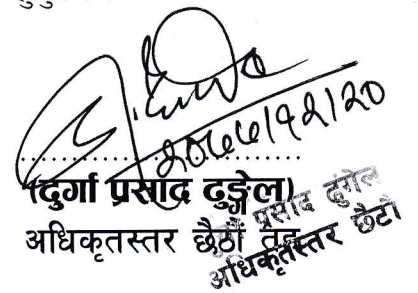 २०७७।१२।२०
(दुर्गा प्रसाद ढुङ्गेल)
अधिकृतस्तर छैठौं तह
प्रसाद ढुंगेल
अधिकृतस्तर छैटौ